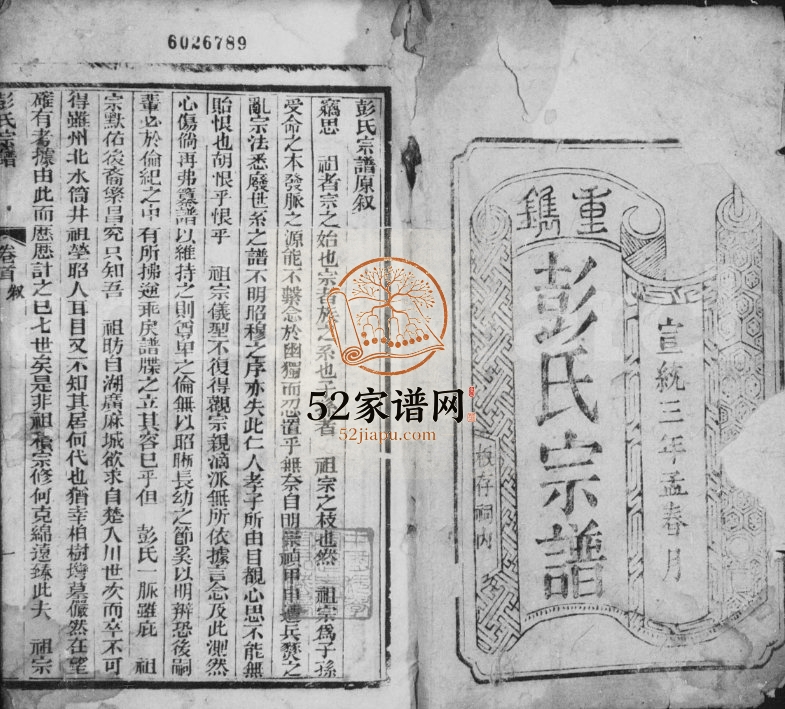 6026789
宣統三年孟春月
重鐫
彭氏宗譜
板存祠內
彭氏宗譜原叙
竊思 祖者宗之始也宗者族之系也子者 祖宗之枝也然 祖宗為子孫
受命之本發脈之源能不繫念於幽獨而忍置乎無奈自明崇禎甲申遭兵燹之
亂宗法悉廢世系之譜不明昭穆之序亦失此仁人孝子所由目觀心思不能無
貽恨也胡恨乎恨乎 祖宗儀型不復得觀宗親滴派無所依據言念及此測然
心傷倘再弗纂譜以維持之則尊卑之倫無以昭晰長幼之節奚以明辨恐後嗣
輩必於倫紀之中有所拂逆乖戾譜牒之立其容已乎但 彭氏一脈雖庇 祖
宗默佑後裔繁昌究只知吾 祖昉自湖廣麻城欲求自楚入川世次而卒不可
得雖州北水筒井祖塋昭人耳目又不知其居何代也猶幸柏樹塆墓儼然在望
確有考據由此而歷歷計之已七世矣是非祖積宗修何克綿遠臻此夫 祖宗
彭氏宗譜 卷首 叙
52家谱网
52jiapu.com